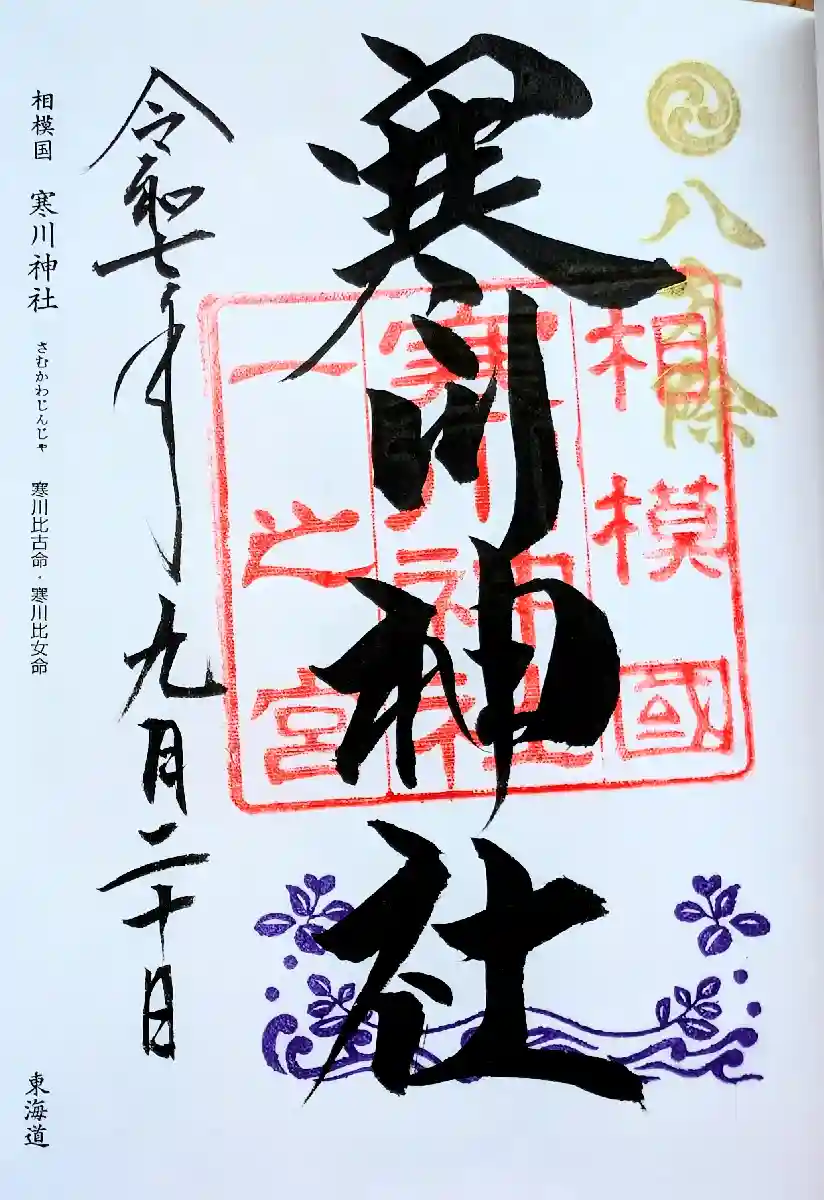 八方除
相模國
寒川神社
一之宮
寒川神社
令和七年九月二十日
相模国 寒川神社 さむかわじんじゃ 寒川比古命・寒川比女命 東海道